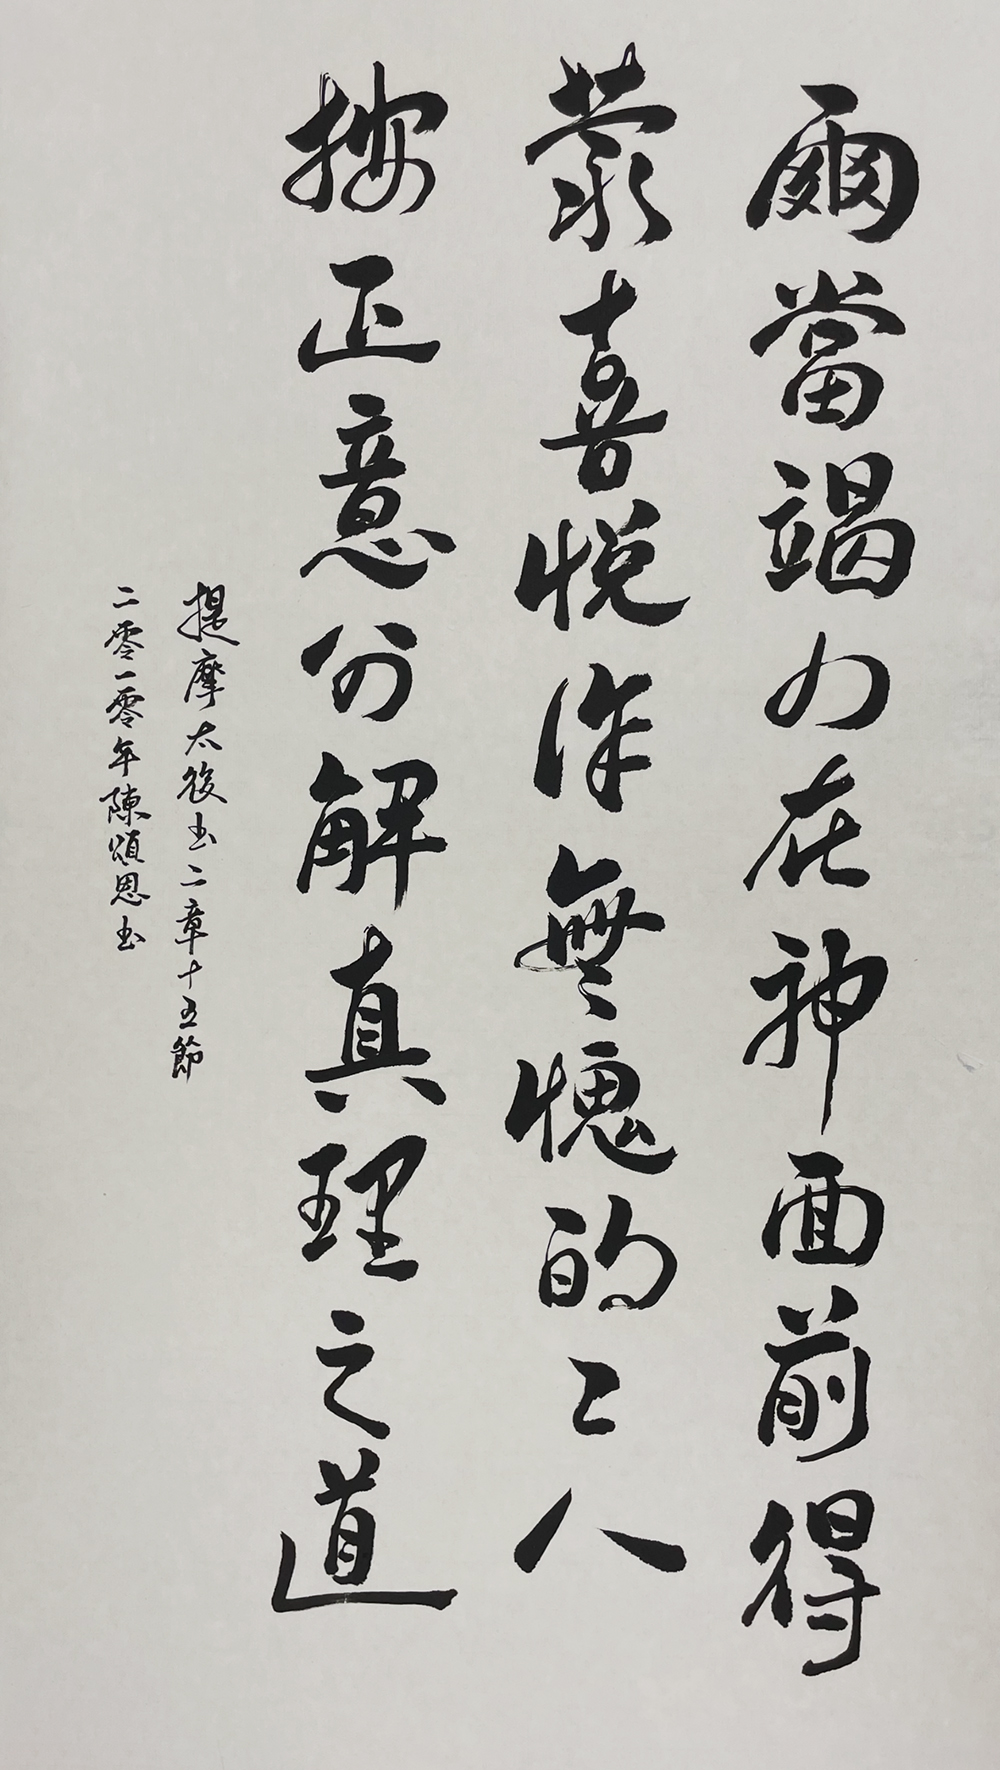 爾當竭力在神面前得
蒙喜悅作無愧的工人
按正意分解真理之道
提摩太後书二章十五節
二零一零年陳頌恩书